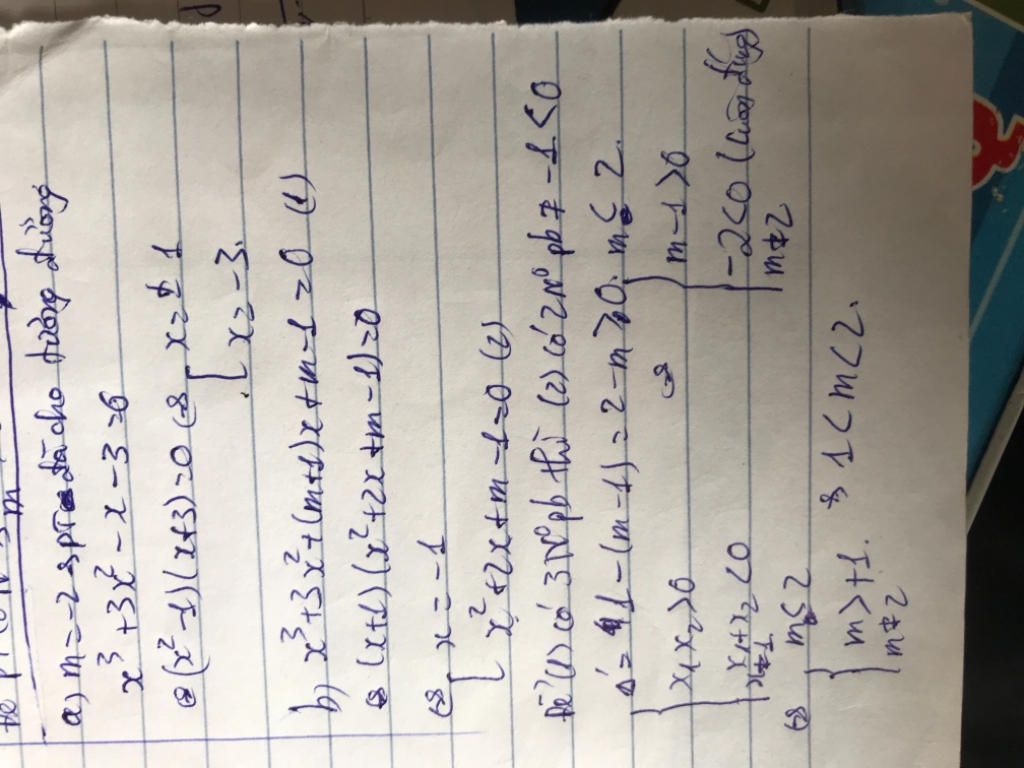 a) m = -2 → pt đã cho tương đương
x³ + 3x² - x - 3 = 0
⇔ (x² - 1)(x + 3) = 0 ⇔ [ x = ± 1
x = -3.
b) x³ + 3x² + (m+1)x + m - 1 = 0 (1)
⇔ (x+1)(x² + 2x + m - 1) = 0
⇔ [ x = -1
x² + 2x + m - 1 = 0 (2)
Để (1) có 3 N⁰ pb thì (2) có 2 N⁰ pb ≠ -1 < 0
Δ' = 1 - (m - 1) = 2 - m > 0. m < 2.
{ x₁x₂ > 0 ⇔ { m - 1 > 0
x₁ + x₂ < 0 -2 < 0 (luôn đúng)
x ≠ -1 m ≠ 2
⇔ m < 2
{ m > +1. ⇒ 1 < m < 2.
m ≠ 2